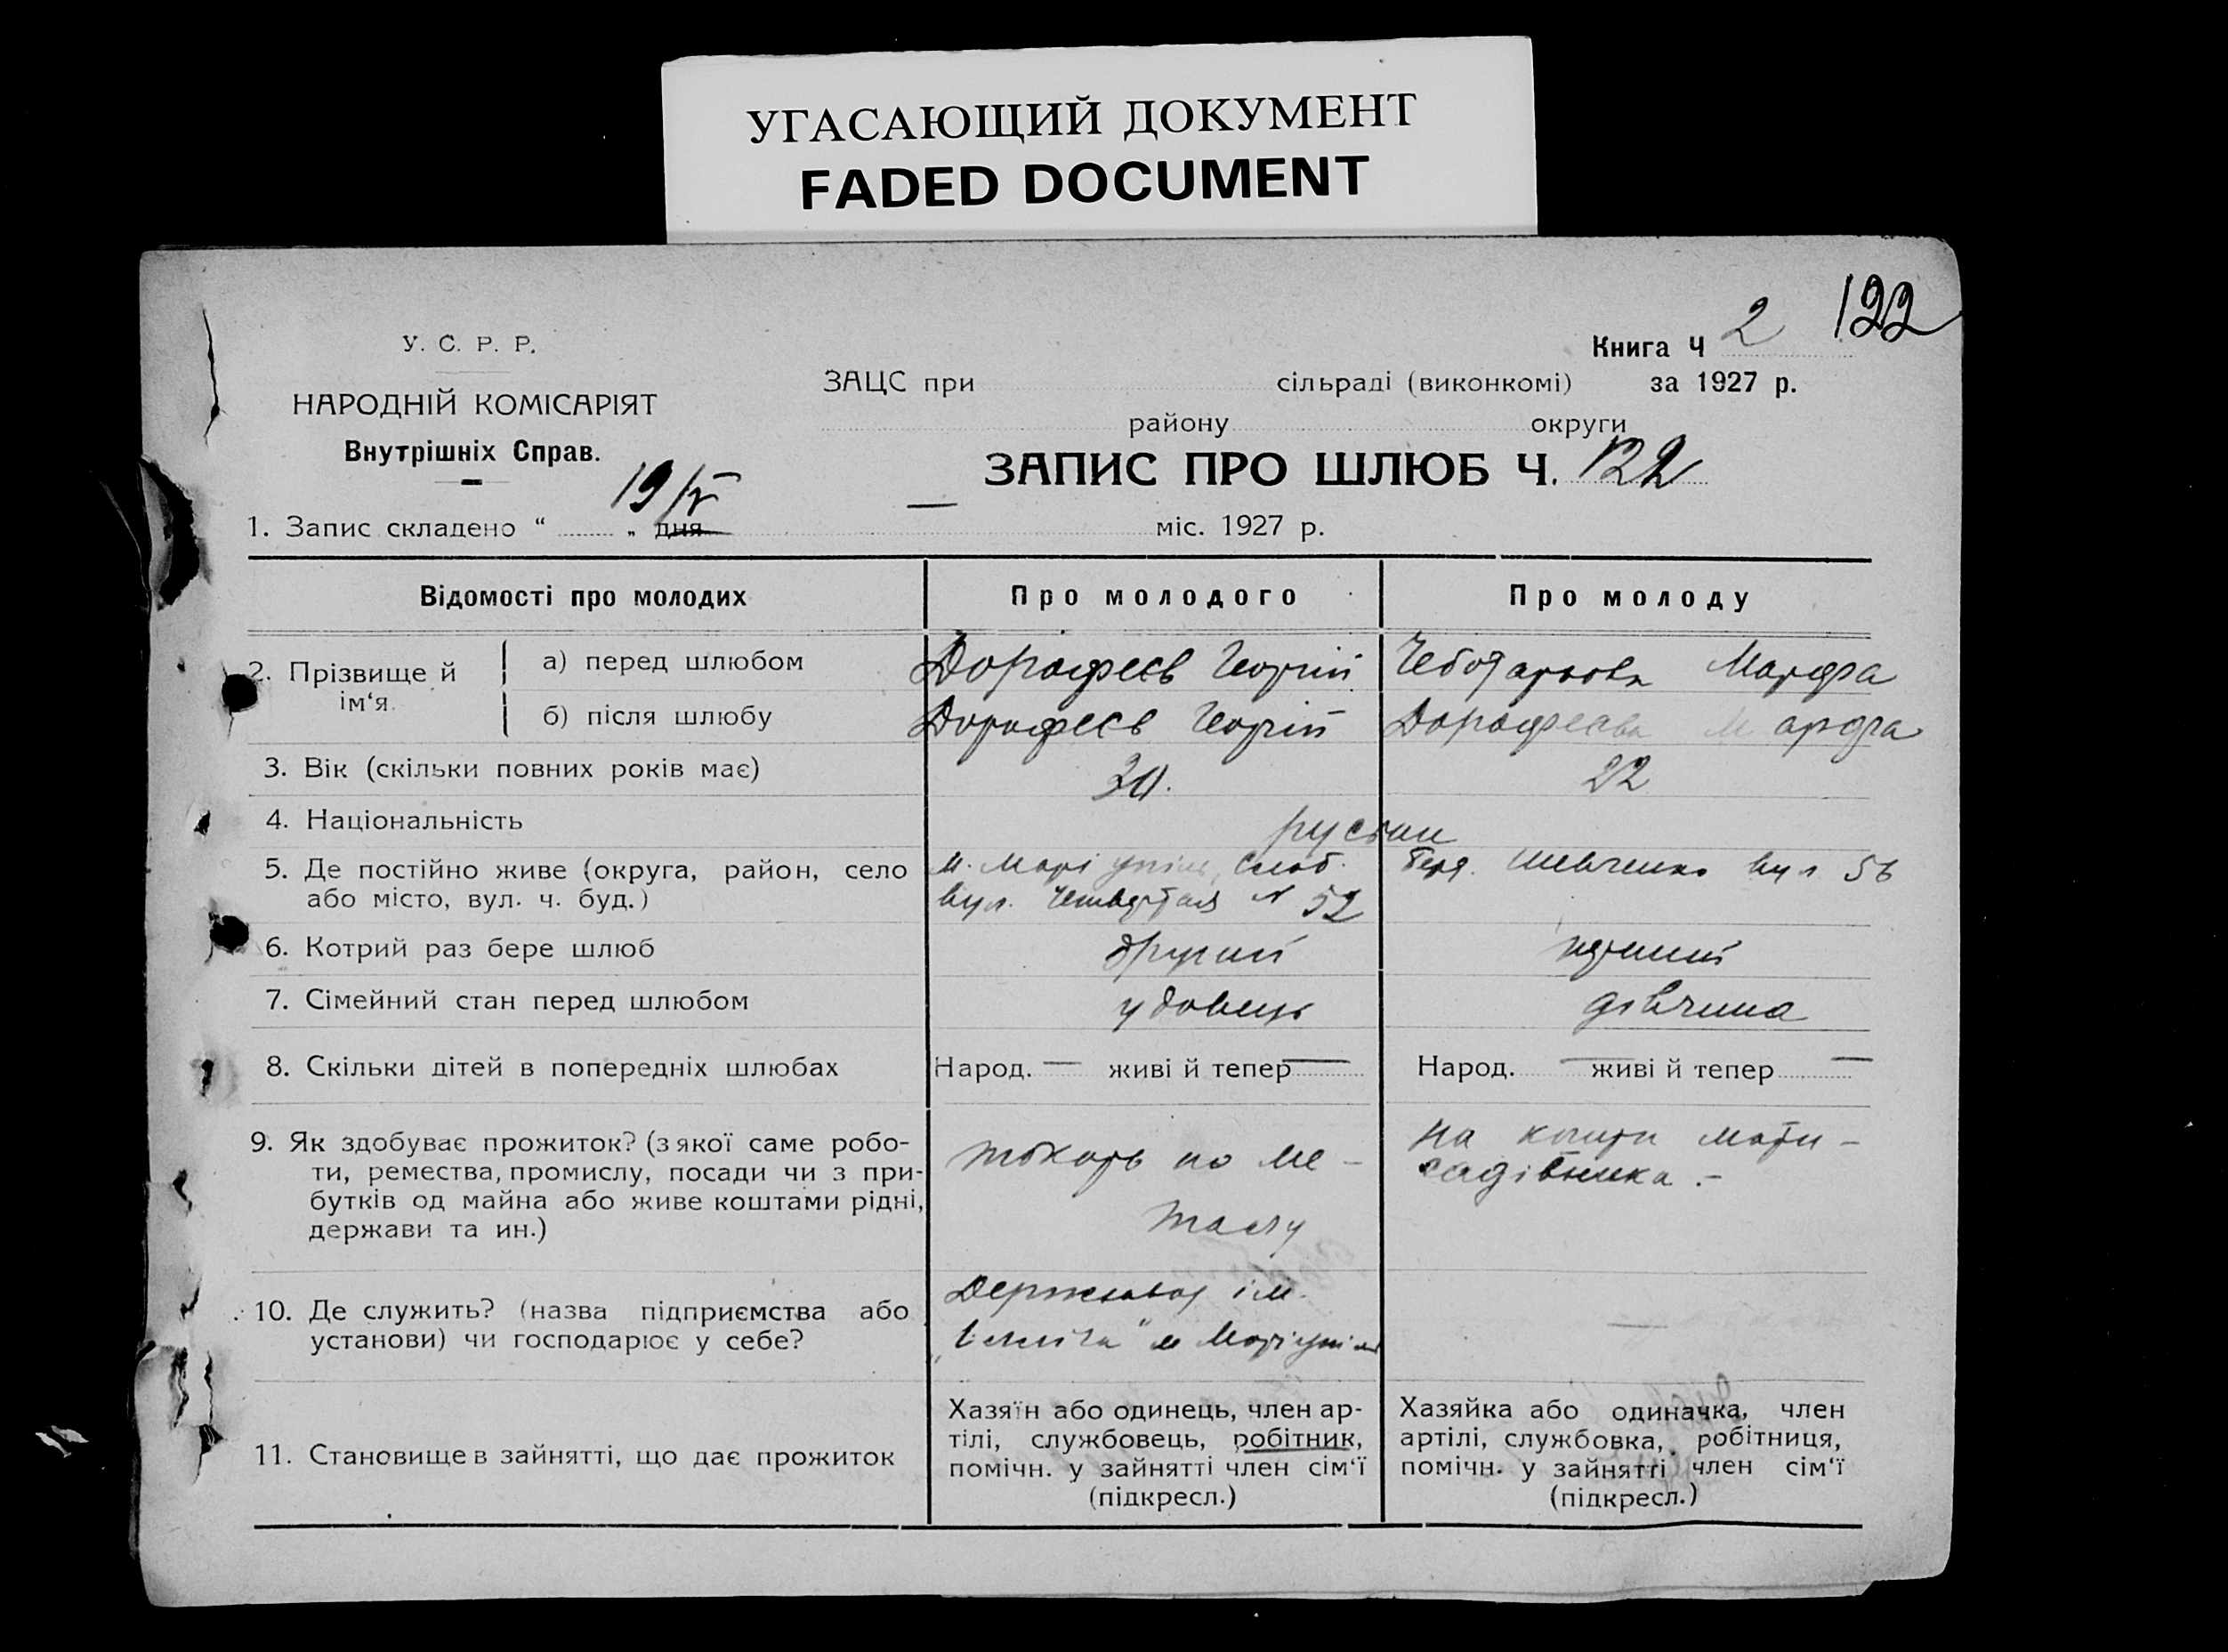 УГАСАЮЩИЙ ДОКУМЕНТ
FADED DOCUMENT
122
У. С. Р. Р.
НАРОДНІЙ КОМІСАРІЯТ
Внутрішніх Справ.
Книга Ч 2
ЗАЦС при сільраді (виконкомі) за 1927 р.
району округи
ЗАПИС ПРО ШЛЮБ Ч. 122
1. Запис складено “ „ дня 19/V міс. 1927 р.
Відомості про молодих
Про молодого
Про молоду
2. Прізвище й ім‘я.
а) перед шлюбом
Дорофеєв Георгій
Чеботарьова Марфа
б) після шлюбу
Дорофеєв Георгій
Дорофеєва Марфа
3. Вік (скільки повних років має)
30.
22
4. Національність
руські
5. Де постійно живе (округа, район, село
або місто, вул. ч. буд.)
м. Маріупіль, Слоб.
вул. Четвертая N 52
Шевченко вул 56
6. Котрий раз бере шлюб
другий
перший
7. Сімейний стан перед шлюбом
удовець
дівчина
8. Скільки дітей в попередніх шлюбах
Народ. — живі й тепер —
Народ. — живі й тепер —
9. Як здобуває прожиток? (з якої саме робо-
ти, ремества, промислу, посади чи з при-
бутків од майна або живе коштами рідні,
держави та ин.)
токарь по ме-
талу
на кошти мати-
садівника.-
10. Де служить? (назва підприємства або
установи) чи господарює у себе?
Держзавод ім.
„Ілліча" м Маріупіль
—
11. Становище в зайнятті, що дає прожиток
Хазяїн або одинець, член ар-
тілі, службовець, робітник,
помічн. у зайнятті член сім‘ї
(підкресл.)
Хазяйка або одиначка, член
артілі, службовка, робітниця,
помічн. у зайнятті член сім‘ї
(підкресл.)